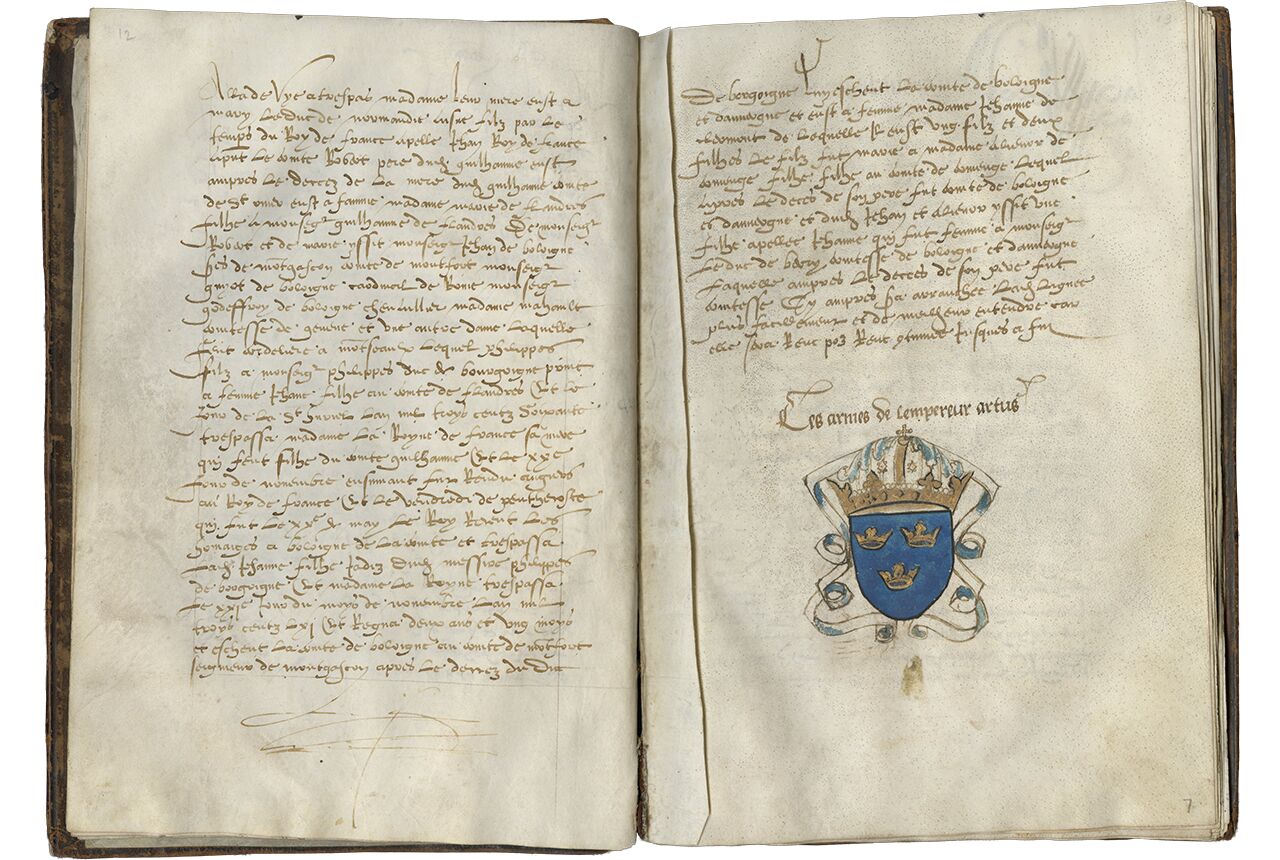 12
Alla de vye a trespas madame leur mere eust a
mary le duc de normandie aisne filz par le
temps du Roy de france apelle Jehan Roy de france
apnt le comte Robert pere dud guilhaume eust
ampres le decez de la mere dud guilhaume comte
de St omer eust a famme madame marie de flandres
filhe a monseigr guilhaume de flandres De monseigr
Robert et de marie yssit monseigr Jehan de boloigne
de montgascon comte de montfort monseigr
guyot de boloigne cardinal de Rome monseigr
godeffroy de boloigne chevallier madame mahault
comtesse de geneve et une autre dame laquelle
feut cordeliere a lequel phelippes
filz a monseigr phelippes duc de bourgoigne print
a femme Jehane filhe au comte de flandres Et le
Jour de la lan mil troys centz soixante
trespassa madame la Royne de france sa mere
qui feut filhe du comte guilhaume Et le xxe
Jour de novembre ensuivant fut Rendu
au Roy de france Et le vendredi de penthecoste
qui fut le xxe de may le Roy Receut les
homaiges a boloigne de la comte et trespassa
lad Jehanne filhe Jadiz dud messire phelippes
de borgoigne Et madame la Royne trespassa
le xxie Jour du moys de novembre lan mil
troys centz lxi Et Regna deux ans et ung moys
et escheut la comte de boloigne au comte de montfort
seigneur de montgascon apres le decez du dit
13
De borgoigne luy escheut la comte de boloigne
et dauvergne et eust a femme madame Jehanne de
clermont de lequelle Il eust ung filz et deux
filhes le filz fut marie a madame alienor de
comenge filhe au comte de comenge lequel
apres le deces de son pere fut comte de boloigne
et dauvergne et dud Jehan et alienor yssit une
filhe apellee Jehanne qui fut femme a monseigr
le duc de berry comtesse de boloigne et dauvergne
laquelle ampres le deces de son pere fut
comtesse Cy ampres sa lad lignee
plus facillement et de meilheur entendre car
elle Jusques a fin
Les armes de lempereur artus
7